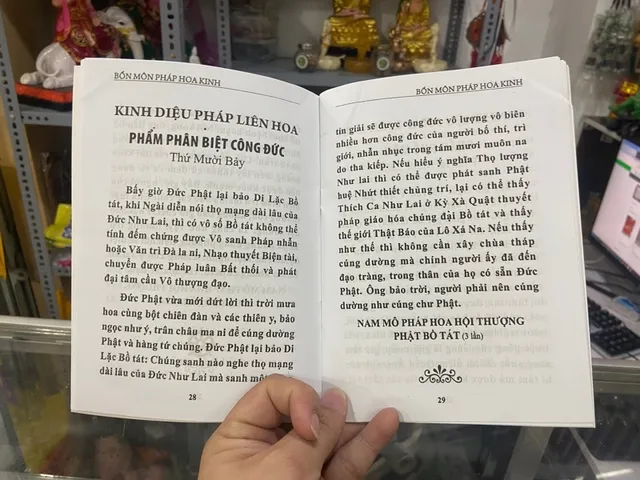 BỐN MÔN PHÁP HOA KINH
KINH DIỆU PHÁP LIÊN HOA
PHẨM PHÂN BIỆT CÔNG ĐỨC
Thứ Mười Bảy
Bấy giờ Đức Phật lại bảo Di Lặc Bồ
tát, khi Ngài diễn nói thọ mạng dài lâu của
Đức Như Lai, thì có vô số Bồ tát không thể
tính đếm chứng được Vô sanh Pháp nhẫn
hoặc Văn trì Đà la ni, Nhạo thuyết Biện tài,
chuyển được Pháp luân Bất thối và phát
đại tâm cầu Vô thượng đạo.
Đức Phật vừa mới dứt lời thì trời mưa
hoa cùng bột chiên đàn và các thiên y, bảo
ngọc như ý, trân châu ma ni để cúng dường
Phật và hàng tứ chúng. Đức Phật lại bảo Di
Lặc Bồ tát: Chúng sanh nào nghe thọ mạng
dài lâu của Đức Như Lai mà sanh một
28
BỐN MÔN PHÁP HOA KINH
tín giải sẽ được công đức vô lượng vô biên
nhiều hơn công đức của người bố thí, trì
giới, nhẫn nhục trong tám mươi muôn na
do tha kiếp. Nếu hiểu ý nghĩa Thọ lượng
Như lai thì có thể được phát sanh Phật
huệ Nhứt thiết chủng trí, lại có thể thấy
Thích Ca Như Lai ở Kỳ Xà Quật thuyết
pháp giáo hóa chúng đại Bồ tát và thấy
thế giới Thật Báo của Lô Xá Na. Nếu thấy
như thế thì không cần xây chùa tháp
cúng dường mà chính người ấy đã đến
đạo tràng, trong thân của họ có sẵn Đức
Phật. Ông bảo trời, người phải nên cúng
dường như cúng chư Phật.
NAM MÔ PHÁP HOA HỘI THƯỢNG
PHẬT BỒ TÁT (3 lần)
29